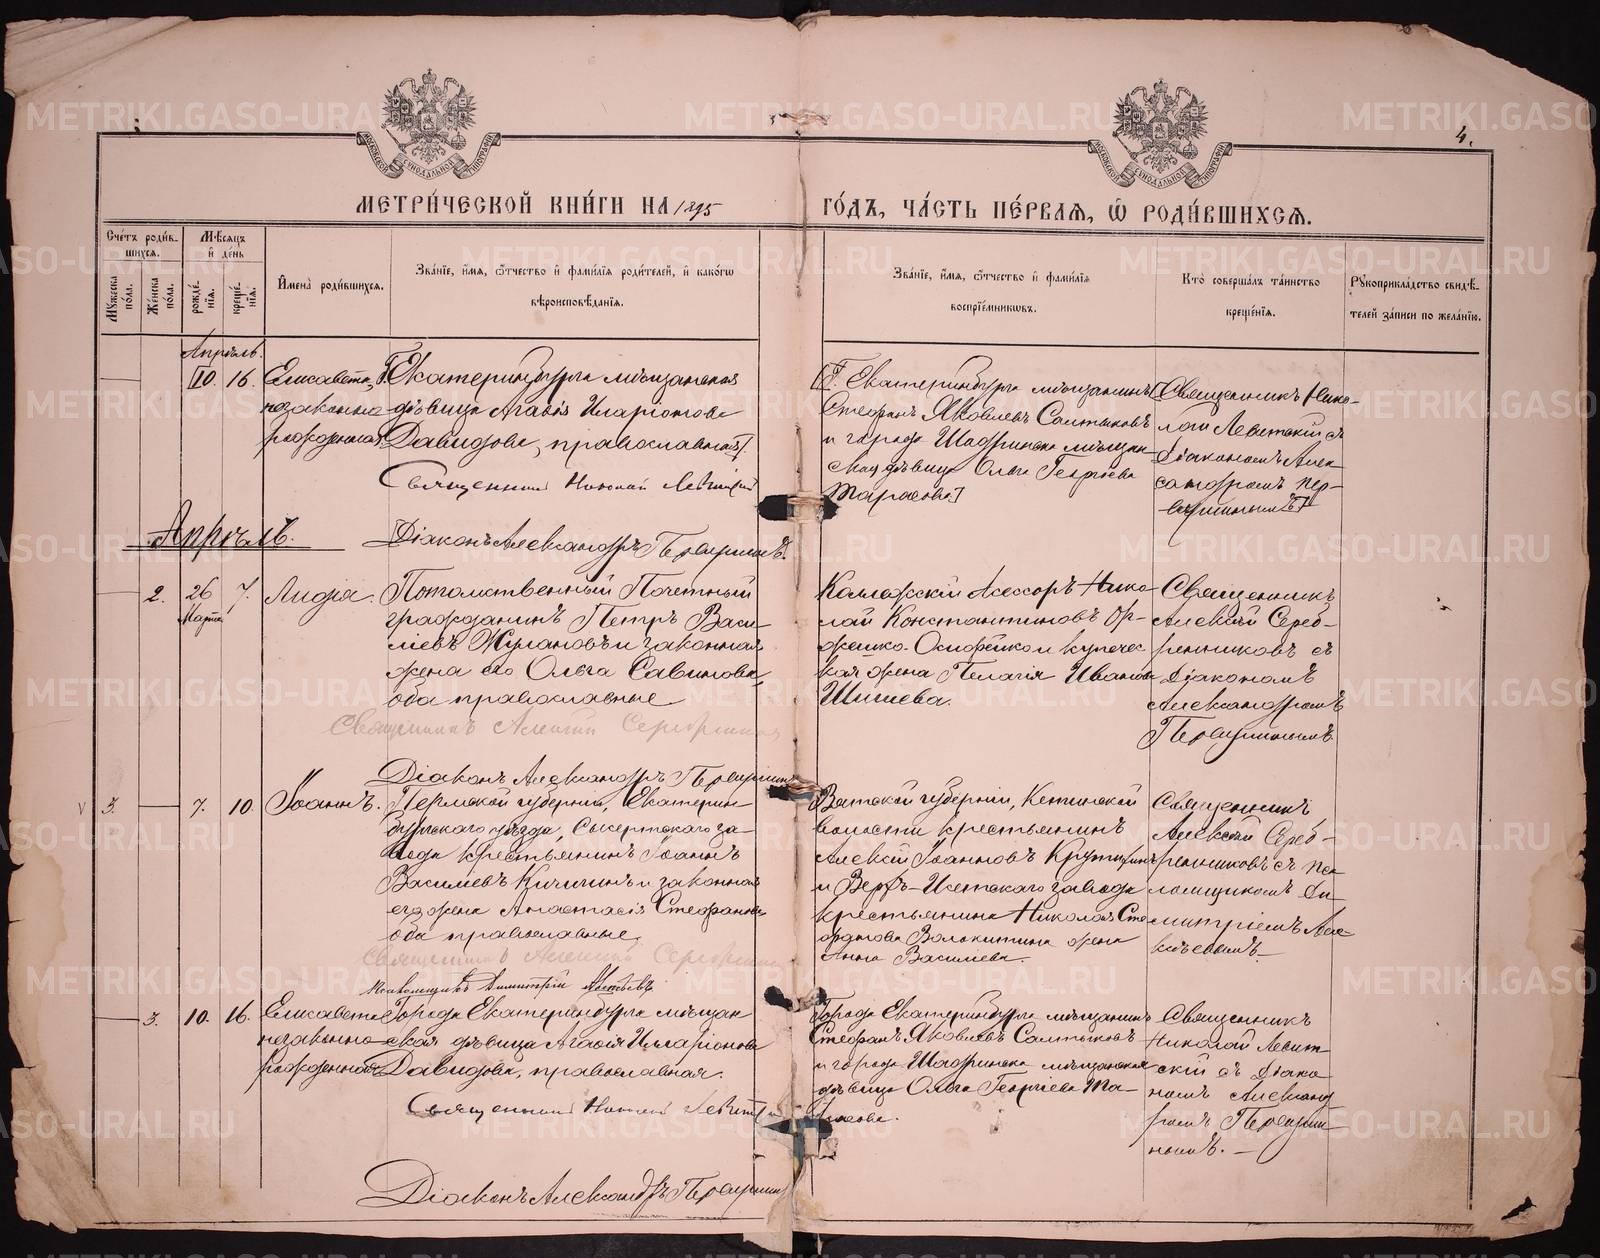 4.
МЕТРИ́ЧЕСКОЙ КНИ́ГИ НА 1895 ГО́ДЪ, ЧА́СТЬ ПЕ́РВАѦ, Ѡ РОДИ́ВШИХСѦ.
Сче́тъ роди́в-
шихсѧ.
Мѣ́сѧцъ
и҆ де́нь
Мꙋ́жеска по́ла.
Же́нска по́ла.
рожде́-
нїѧ.
креще́-
нїѧ.
И҆мена̀ роди́вшихсѧ.
Зва́нїе, и҆́мѧ, ѻ҆́тчество и҆ фами́лїѧ роди́телей, и҆ како́гѡ
вѣроисповѣ́данїѧ.
Зва́нїе, и҆́мѧ, ѻ҆́тчество и҆ фами́лїѧ
воспрїе́мникѡвъ.
Кто̀ соверша́лъ та́инство
креще́нїѧ.
Рꙋкоприкла́дство свидѣ́-
телей за́писи по жела́нїю.
Апрѣль.
10. 16.
Елисавета,
незаконно
рожденная
Г. Екатеринбурга мѣщанская
дѣвица Агафія Иларіонова
Давидова, православная].
Священникъ Николай Левитскій
Діаконъ Александръ Первушинъ.
[Г. Екатеринбурга мѣщанинъ
Стефанъ Яковлевъ Салтыковъ
и города Шадринска мѣщан-
ская дѣвица Ольга Георгіева
Тарасова]
[Священникъ Нико-
лай Левитскій съ
Діакономъ Алек
сандромъ Пер-
вушинымъ]
Апрѣль.
2. 26
Марта
7.
Лидія.
Потомственный Почетный
гражданинъ Петръ Васи-
ліевъ Жулановъ и законная
жена его Ольга Савинова,
оба православные
Священникъ Алексій Серебренниковъ
Діаконъ Александръ Первушинъ
Коллежскій Асессоръ Нико
лай Константиновъ Ор-
жешко-Осифейко и купечес
кая жена Пелагія Иванова
Шишева.
Священникъ
Алексій Сереб-
ренниковъ съ
Діакономъ
Александромъ
Первушинымъ.
3. 7. 10.
Іоаннъ.
Пермской губерніи, Екатерин-
бургскаго уѣзда, Сысертскаго за-
вода крестьянинъ Іоаннъ
Василіевъ Кичигинъ и законная
его жена Анастасія Стефанова
оба православные,
Священникъ Алексій Серебренниковъ
Псаломщикъ Димитрій
Вятской губерніи,
волости крестьянинъ
Алексій Іоанновъ
и Верхъ-Исетскаго завода
крестьянина Николая Спи
ридонова Волокитина жена
Анна Василіева.
Священникъ
Алексій Сереб-
ренниковъ съ пса
ломщикомъ Ди
митріемъ
3. 10. 16.
Елисавета
незаконно
рожденная
Города Екатеринбурга мѣщан
ская дѣвица Агафія Илларіонова
Давидова, православная.
Священникъ Николай Левитскій
Діаконъ Александръ Первушинъ
Города Екатеринбурга мѣщанинъ
Стефанъ Яковлевъ Салтыковъ
и города Шадринска мѣщанская
дѣвица Ольга Георгіева Та-
расова.
Священникъ
Николай Левит
скій съ Діако
номъ Александ
ромъ Первуши
нымъ. —
METRIKI.GASO-URAL.RU